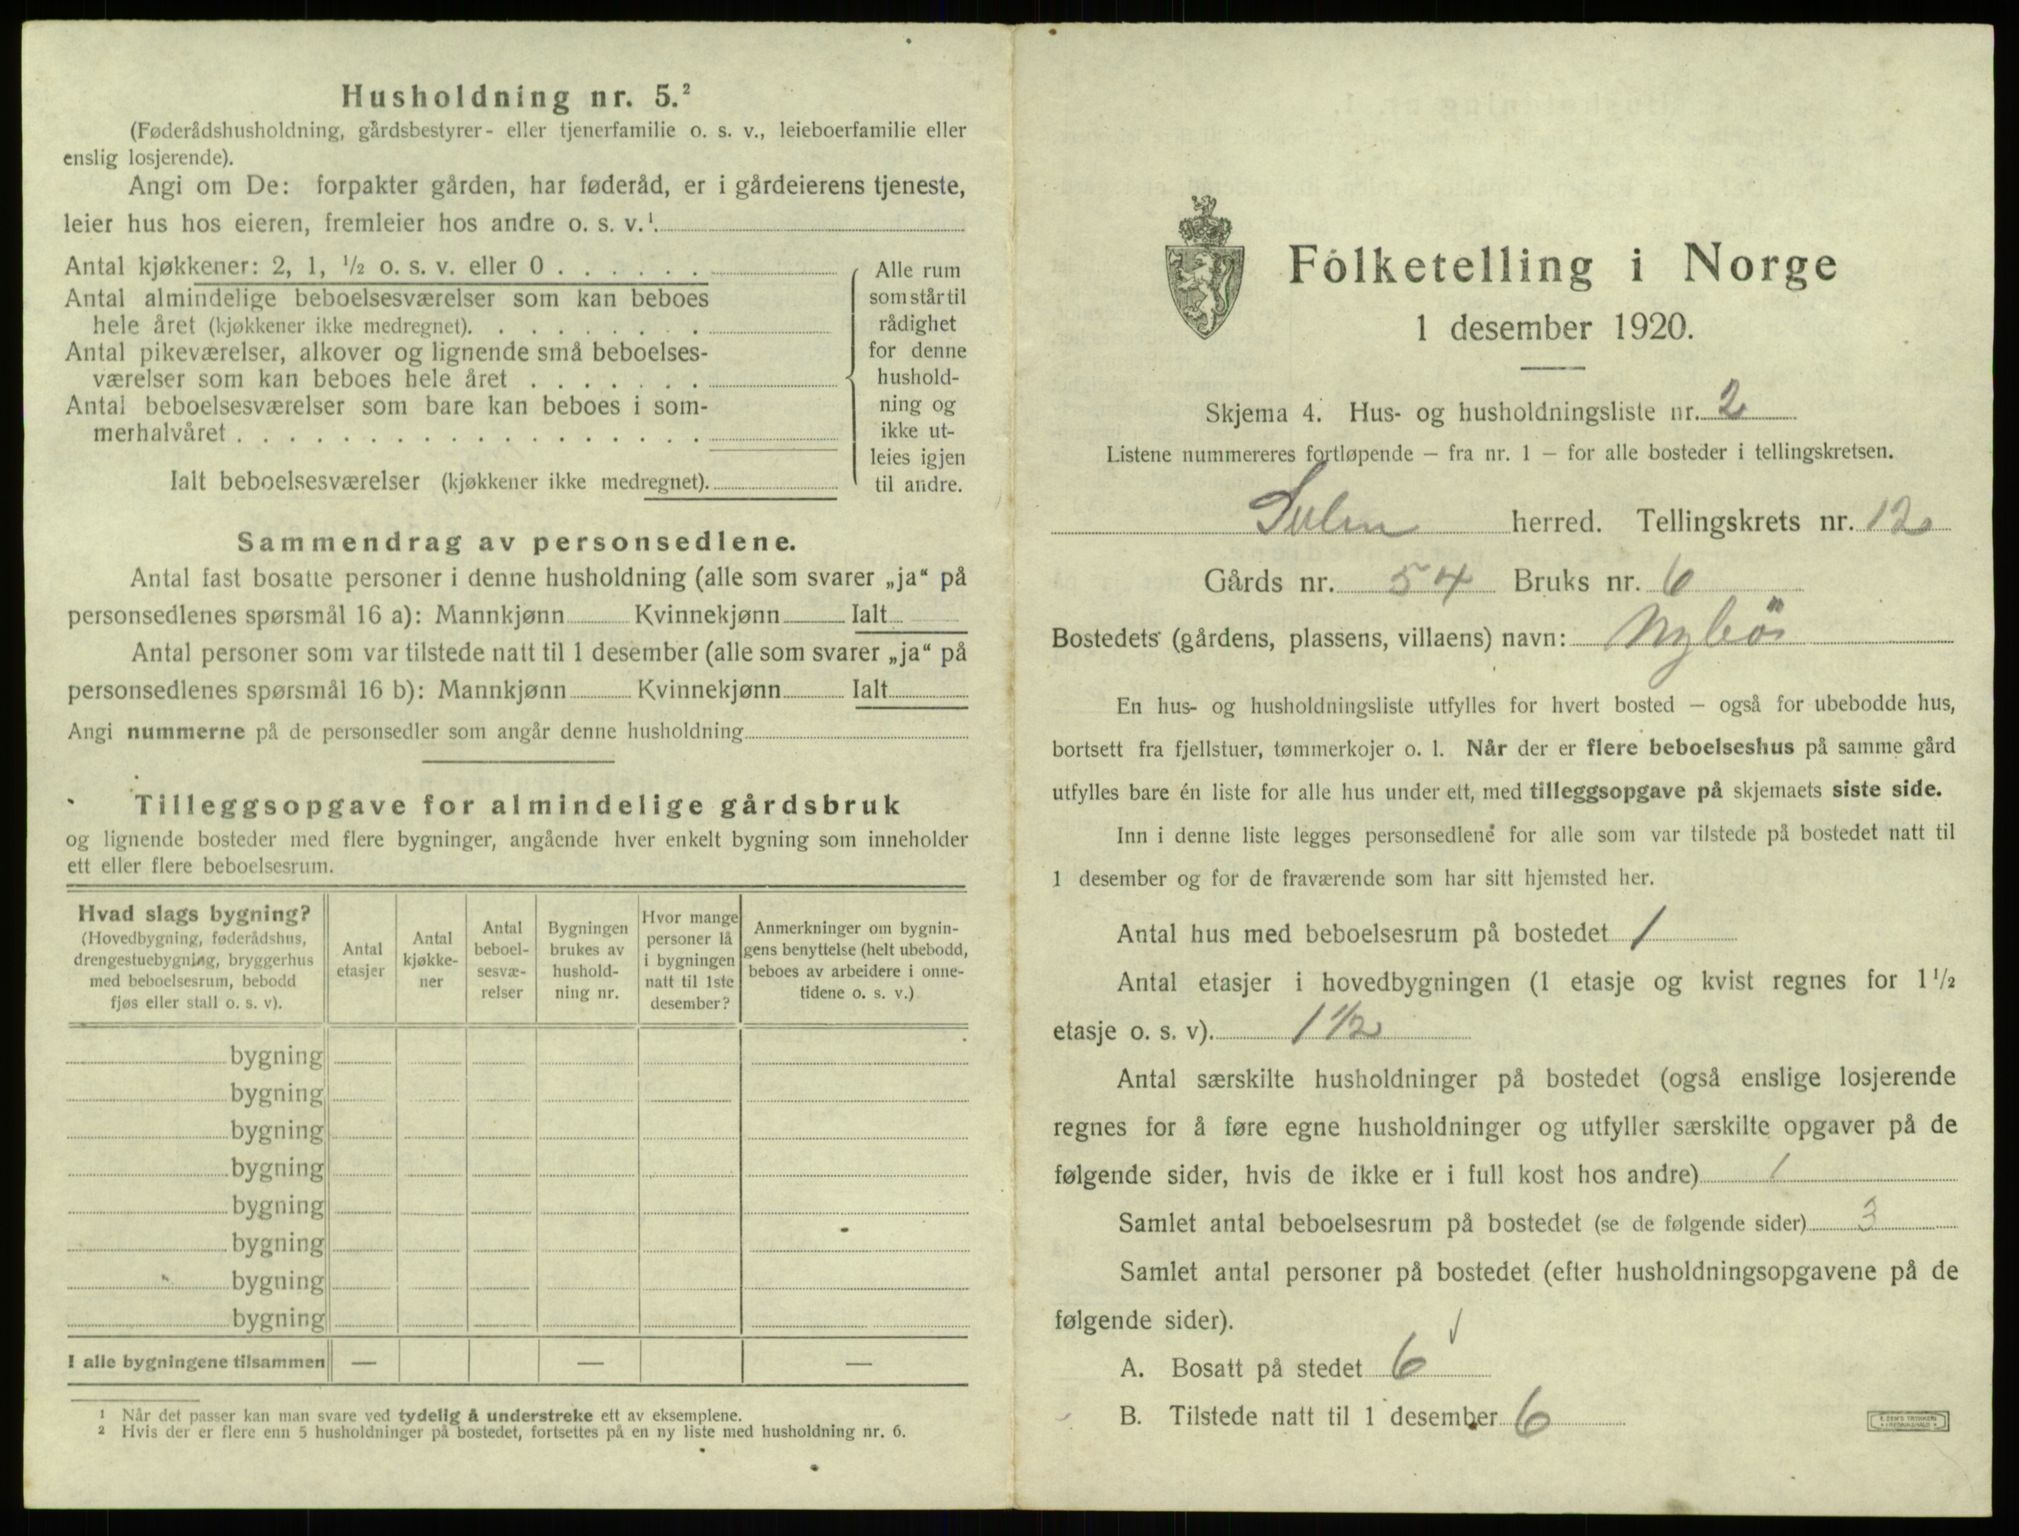 Husholdning nr. 5.²
(Føderådshusholdning, gårdsbestyrer- eller tjenerfamilie o. s. v., leieboerfamilie eller
enslig losjerende).
Angi om De: forpakter gården, har føderåd, er i gårdeierens tjeneste,
leier hus hos eieren, fremleier hos andre o. s. v.¹.
Antal kjøkkener: 2, 1, ½ o. s. v. eller 0 . . . . . .
Antal almindelige beboelsesværelser som kan beboes
hele året (kjøkkener ikke medregnet). . . . . . . . .
Antal pikeværelser, alkover og lignende små beboelses-
værelser som kan beboes hele året . . . . . . .
Antal beboelsesværelser som bare kan beboes i som-
merhalvåret . . . . . . . . . . . . . . . . . .
Ialt beboelsesværelser (kjøkkener ikke medregnet).
Alle rum
som står til
rådighet
for denne
hushold-
ning og
ikke ut-
leies igjen
til andre.
Sammendrag av personsedlene.
Antal fast bosatte personer i denne husholdning (alle som svarer „ja“ på
personsedlenes spørsmål 16 a): Mannkjønn Kvinnekjønn Ialt
Antal personer som var tilstede natt til 1 desember (alle som svarer „ja“ på
personsedlenes spørsmål 16 b): Mannkjønn Kvinnekjønn Ialt
Angi nummerne på de personsedler som angår denne husholdning
Tilleggsopgave for almindelige gårdsbruk
og lignende bosteder med flere bygninger, angående hver enkelt bygning som inneholder
ett eller flere beboelsesrum.
Hvad slags bygning?
(Hovedbygning, føderådshus,
drengestuebygning, bryggerhus
med beboelsesrum, bebodd
fjøs eller stall o. s. v).
Antal
etasjer
Antal
kjøkke-
ner
Antal
beboel-
sesvæ-
relser
Bygningen
brukes av
hushold-
ning nr.
Hvor mange
personer lå
i bygningen
natt til 1ste
desember?
Anmerkninger om bygnin-
gens benyttelse (helt ubebodd,
beboes av arbeidere i onne-
tidene o. s. v.)
bygning
bygning
bygning
bygning
bygning
bygning
bygning
bygning
I alle bygningene tilsammen — — —
¹ Når det passer kan man svare ved tydelig å understreke ett av eksemplene.
² Hvis der er flere enn 5 husholdninger på bostedet, fortsettes på en ny liste med husholdning nr. 6.
Folketelling i Norge
1 desember 1920.
Skjema 4. Hus- og husholdningsliste nr. 2
Listene nummereres fortløpende – fra nr. 1 – for alle bosteder i tellingskretsen.
Sulen herred. Tellingskrets nr. 12
Gårds nr. 54 Bruks nr. 6
Bostedets (gårdens, plassens, villaens) navn: Nybö
En hus- og husholdningsliste utfylles for hvert bosted – også for ubebodde hus,
bortsett fra fjellstuer, tømmerkojer o. l. Når der er flere beboelseshus på samme gård
utfylles bare én liste for alle hus under ett, med tilleggsopgave på skjemaets siste side.
Inn i denne liste legges personsedlene for alle som var tilstede på bostedet natt til
1 desember og for de fraværende som har sitt hjemsted her.
Antal hus med beboelsesrum på bostedet 1
Antal etasjer i hovedbygningen (1 etasje og kvist regnes for 1½
etasje o. s. v). 1½
Antal særskilte husholdninger på bostedet (også enslige losjerende
regnes for å føre egne husholdninger og utfyller særskilte opgaver på de
følgende sider, hvis de ikke er i full kost hos andre) 1
Samlet antal beboelsesrum på bostedet (se de følgende sider) 3
Samlet antal personer på bostedet (efter husholdningsopgavene på de
følgende sider).
A. Bosatt på stedet 6
B. Tilstede natt til 1 desember 6